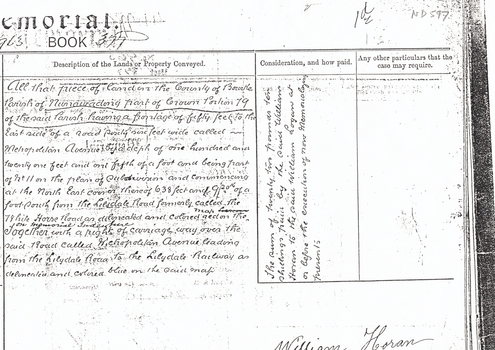 emorial.
ND 597
963
BOOK 337
Description of the Lands or Property Conveyed.
Consideration, and how paid.
Any other particulars that the
case may require.
All that piece of land in the County of Bourke
Parish of Nunawading part of Crown Portion 79
of the said Parish having a frontage of fifty feet to the
East side of a road sixty six feet wide called
Metropolitan Avenue by a depth of one hundred and
twenty one feet and one fifth of a foot and being part
of No 11 on the plan of subdivision and commencing
at the North East corner thereof 638 feet and of a
foot South from the Lilydale Road formerly called the
White Horse Road as delineated and colored red on the
map
Together with a right of carriage way over the
said Road called Metropolitan Avenue leading
from the Lilydale Road to the Lilydale Railway as
delineated and colored blue on the said map
The sum of Twenty five pounds ten
shillings paid by the said William
Horan to the said William Logan at
or before the execution of now Memorializing
presents
William Horan